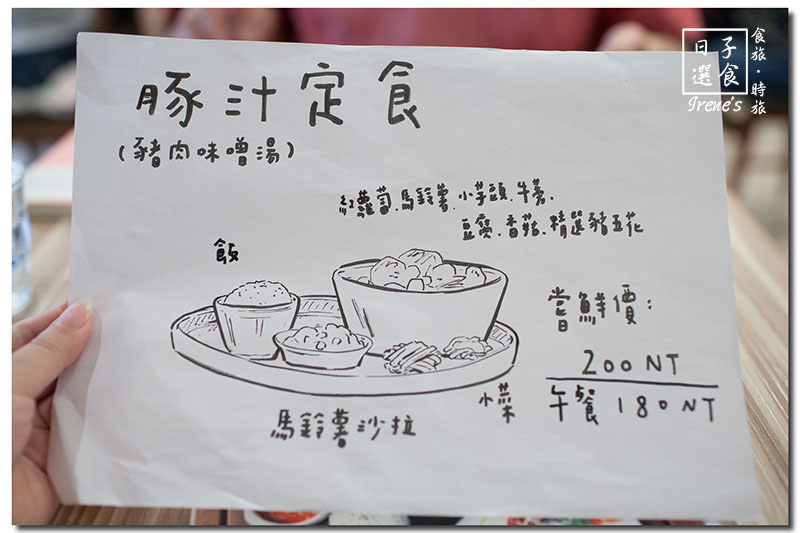 豚汁定食
(豬肉味噌湯)
紅蘿蔔、馬鈴薯、小芋頭、牛蒡、
豆腐、香菇、精選豬五花
飯
嘗鮮價:
200 NT
午餐 180 NT
小菜
馬鈴薯沙拉
日子
選食
Irene's
食旅・時旅